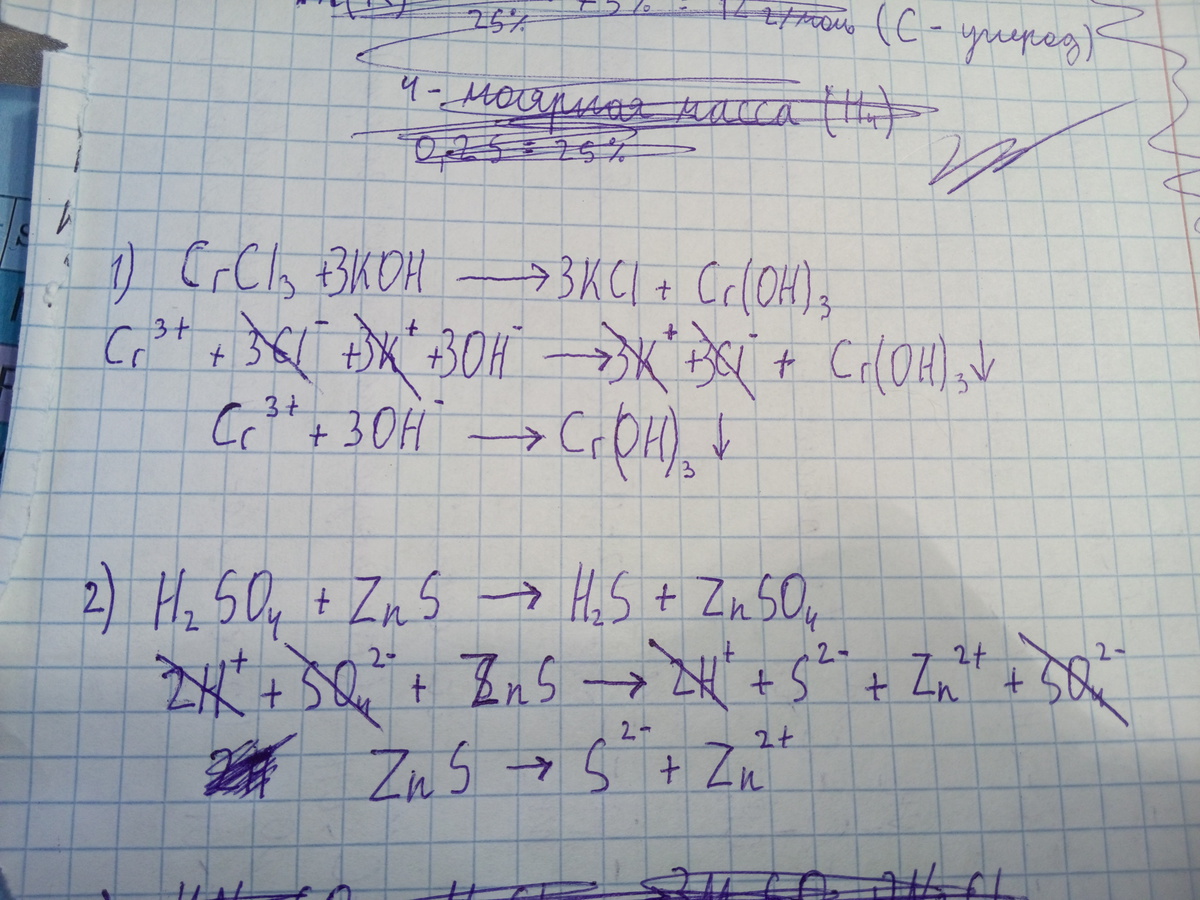 25%
г/моль (С - углерод)
4 - молярная масса (H₄)
0,25 = 25%
1) CrCl₃ + 3KOH → 3KCl + Cr(OH)₃
Cr³⁺ + 3Cl⁻ + 3K⁺ + 3OH⁻ → 3K⁺ + 3Cl⁻ + Cr(OH)₃↓
Cr³⁺ + 3OH⁻ → Cr(OH)₃↓
2) H₂SO₄ + ZnS → H₂S + ZnSO₄
2H⁺ + SO₄²⁻ + ZnS → 2H⁺ + S²⁻ + Zn²⁺ + SO₄²⁻
ZnS → S²⁻ + Zn²⁺